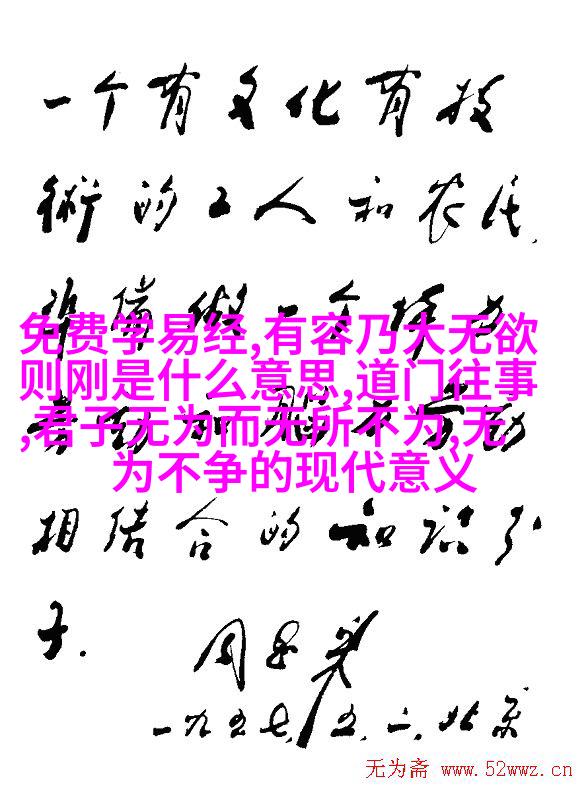 一个有文化有技
術的工人和农民,
免费学易经,有容乃大无欲
则刚是什么意思,道门往事
,君子无为而无所不为,无
为不争的现代意义
相结合的知识分
子.
周恩来
一九五七,五.一,北京
无为斋 www.52wwz.cn